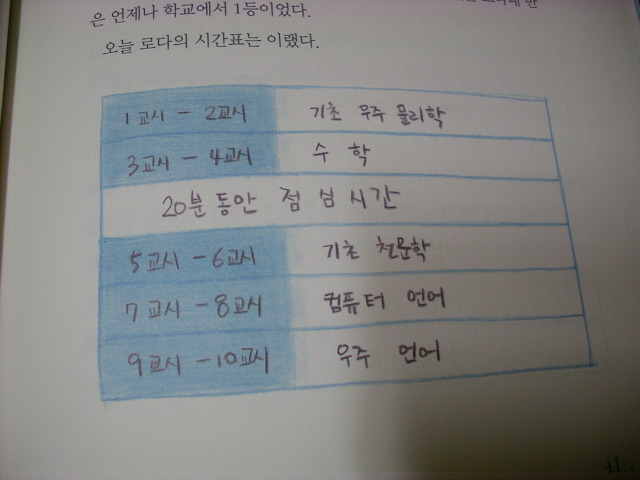 은 언제나 학교에서 1등이었다.
오늘 로다의 시간표는 이랬다.
1교시 - 2교시 기초 우주 물리학
3교시 - 4교시 수 학
20분 동안 점 심 시 간
5교시 - 6교시 기초 천문학
7교시 - 8교시 컴퓨터 언어
9교시 - 10교시 우주 언어
41